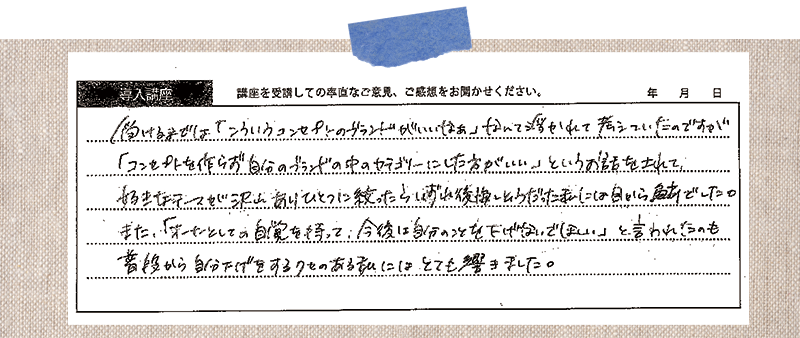 導入講座
講座を受講しての率直なご意見、ご感想をお聞かせください。 年 月 日
受ける前では「こういうコンセプトのブランドがいいなぁ」なんて浮かれて考えていたのですが
「コンセプトを作らず自分のブランドの中のカテゴリーにした方がいい」というお話をされて、
好きなテーマが沢山あり、ひとつに絞ったらいずれ後悔しそうだった私には目から鱗でした。
また、「オーナーとしての自覚を持って、今後は自分のことを下げないでほしい」と言われたのも
普段から自分下げをするクセのある私にはとても響きました。